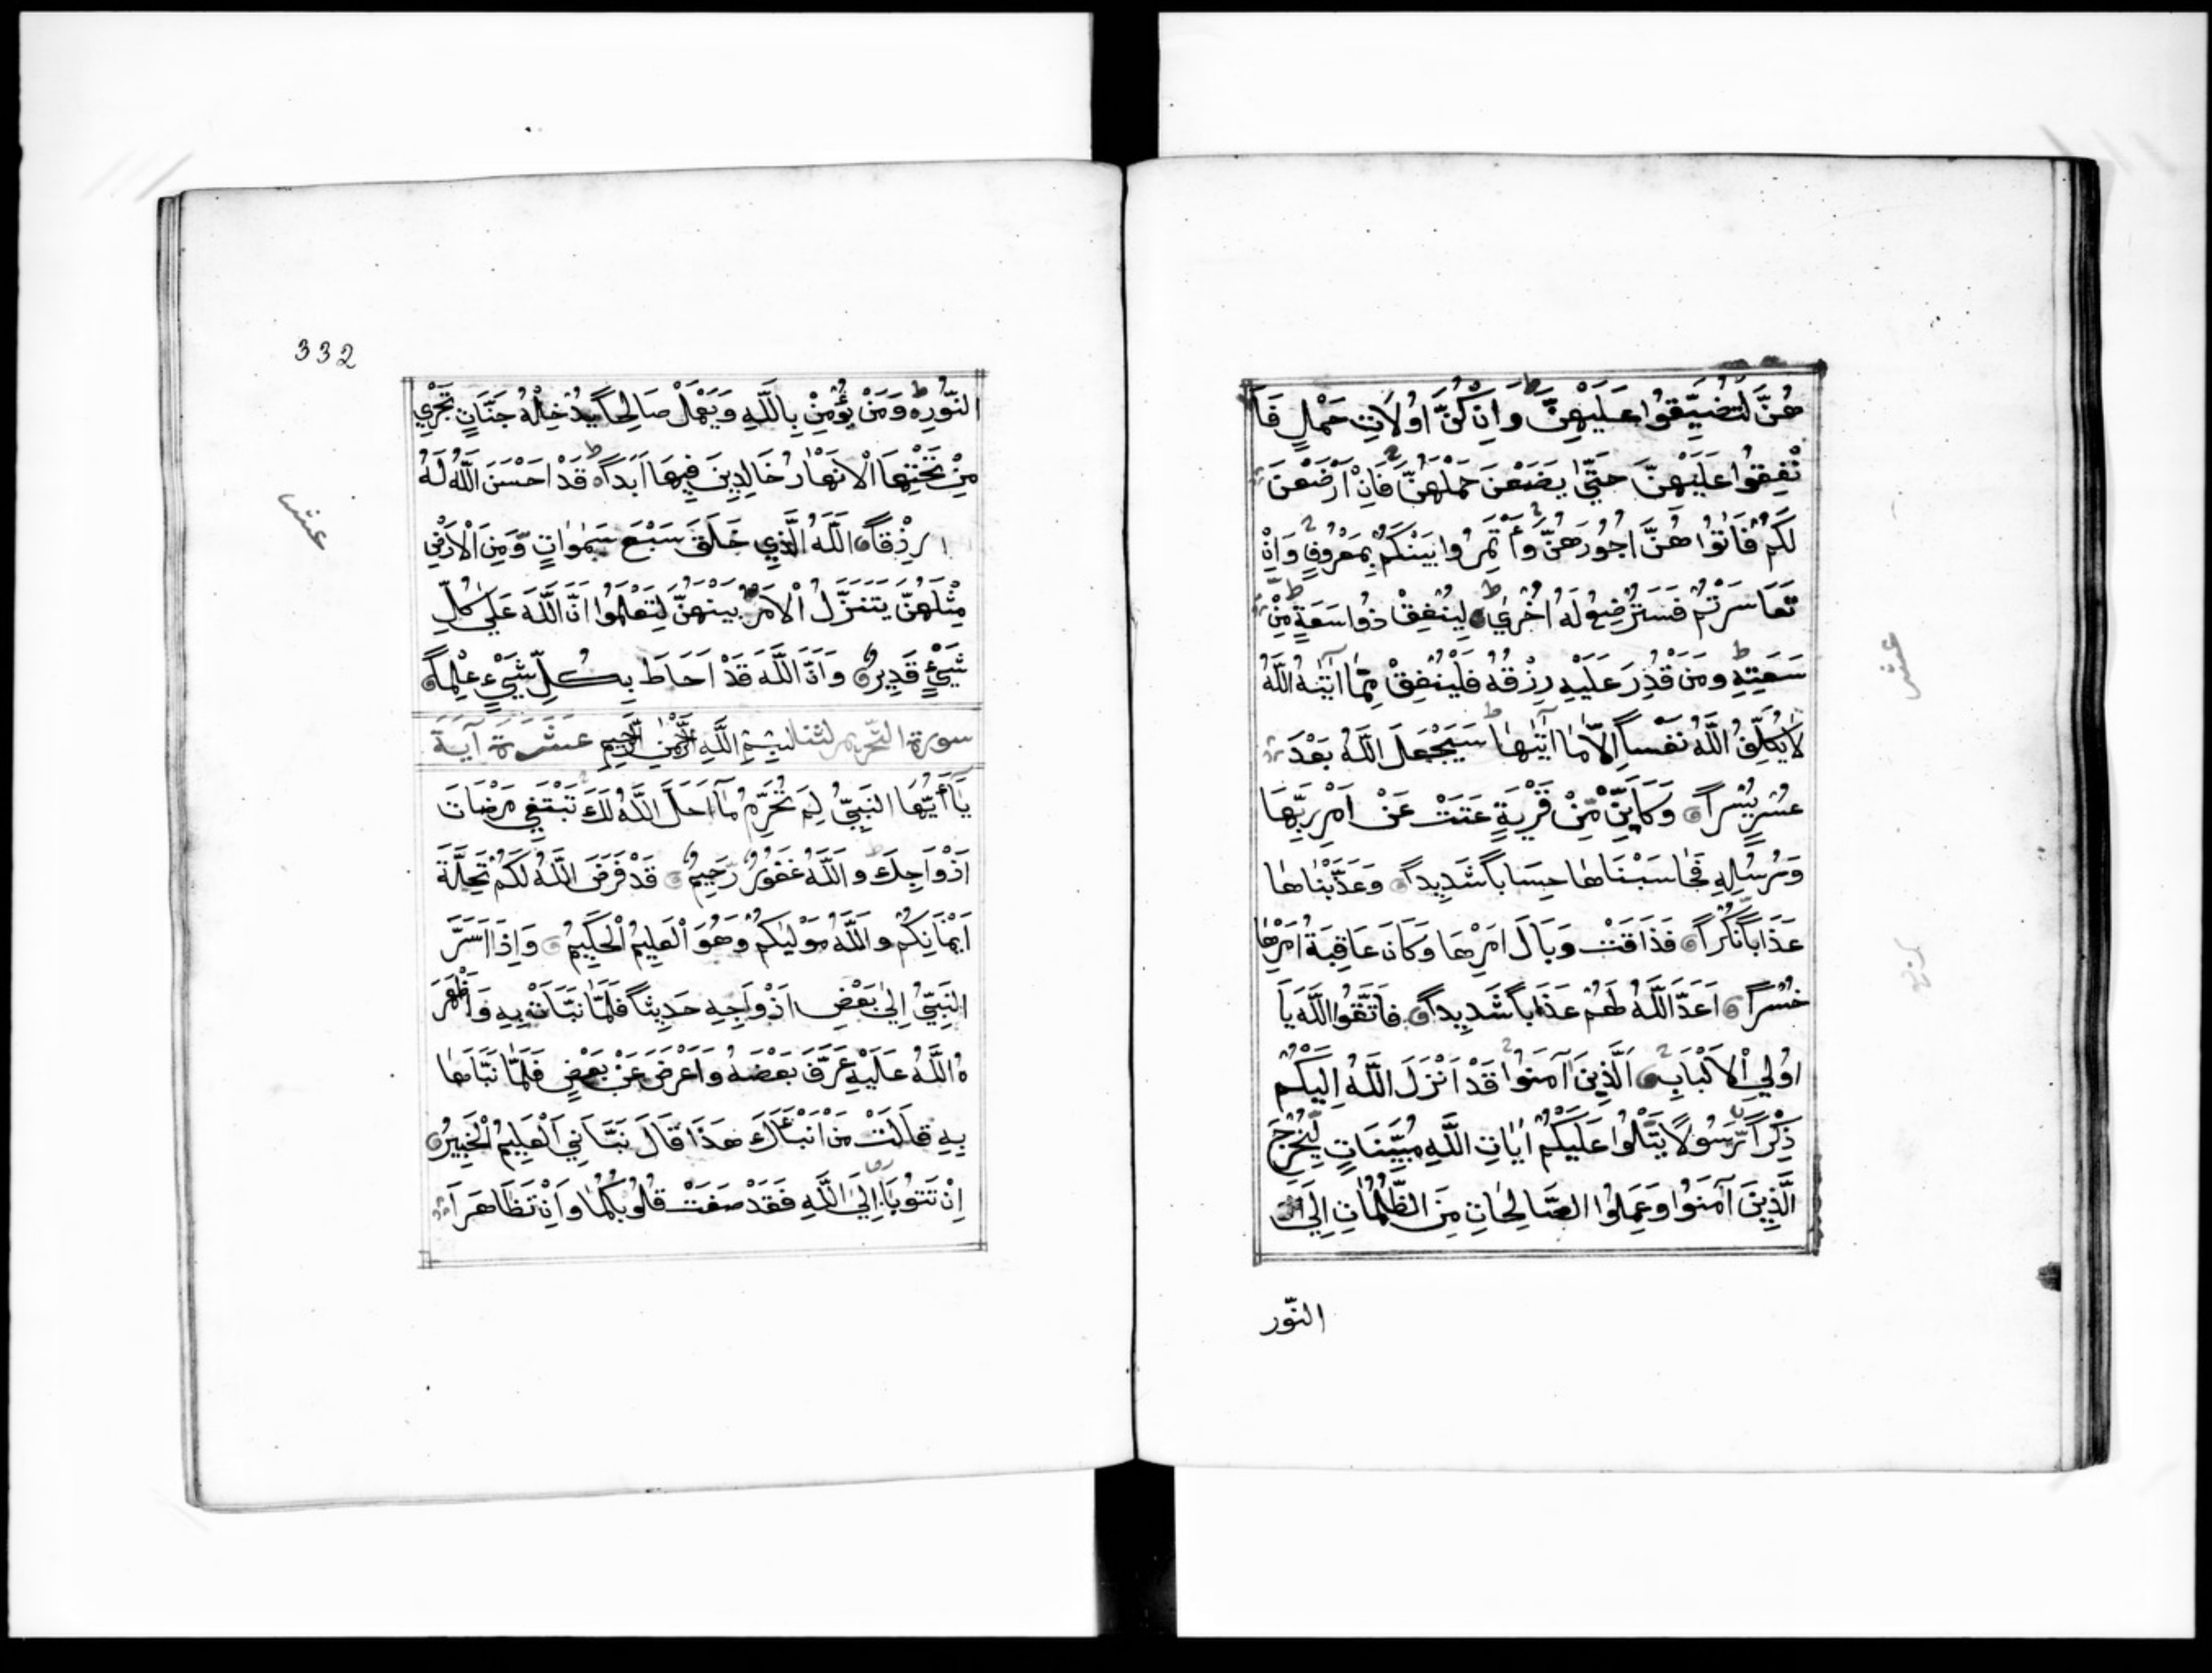 هُنَّ لِتُضَيِّقُوا عَلَيْهِنَّ ط وَاِنْ كُنَّ اُولَاتِ حَمْلٍ فَاَ
نْفِقُوا عَلَيْهِنَّ حَتّٰى يَضَعْنَ حَمْلَهُنَّ فَاِنْ اَرْضَعْنَ
لَكُمْ فَاٰتُوا هُنَّ اُجُورَهُنَّ وَأْتَمِرُوا بَيْنَكُمْ بِمَعْرُوفٍ وَاِنْ
تَعَاسَرْتُمْ فَسَتُرْضِعُ لَهُ اُخْرٰى ط لِيُنْفِقْ ذُوا سَعَةٍ مِنْ
سَعَتِهِ ط وَمَنْ قُدِرَ عَلَيْهِ رِزْقُهُ فَلْيُنْفِقْ مِمَّا اٰتٰيهُ اللَّهُ
لَا يُكَلِّفُ اللَّهُ نَفْساً اِلَّا مَا اٰتٰيهَا ط سَيَجْعَلُ اللَّهُ بَعْدَ
عُسْرٍ يُسْراً وَكَاَيِّنْ مِّنْ قَرْيَةٍ عَتَتْ عَنْ اَمْرِ رَبِّهَا
وَرُسُلِهِ فَحَاسَبْنَاهَا حِسَاباً شَدِيداً وَعَذَّبْنَاهَا
عَذَاباً نُكْراً فَذَاقَتْ وَبَالَ اَمْرِهَا وَكَانَ عَاقِبَةُ اَمْرِهَا
خُسْراً اَعَدَّ اللَّهُ لَهُمْ عَذَاباً شَدِيداً فَاتَّقُوا اللَّهَ يَا
اُولِي الْاَلْبَابِ اَلَّذِينَ آمَنُوا قَدْ اَنْزَلَ اللَّهُ اِلَيْكُمْ
ذِكْراً رَّسُولًا يَتْلُوا عَلَيْكُمْ اٰيَاتِ اللَّهِ مُبَيِّنَاتٍ لِّيُخْرِجَ
الَّذِينَ آمَنُوا وَعَمِلُوا الصَّالِحَاتِ مِنَ الظُّلُمَاتِ اِلَى
النّور
332
النُّورِ ط وَمَنْ يُؤْمِنْ بِاللَّهِ وَيَعْمَلْ صَالِحاً يُدْخِلْهُ جَنَّاتٍ تَجْرِي
مِنْ تَحْتِهَا الْاَنْهَارُ خَالِدِينَ فِيهَا اَبَداً ط قَدْ اَحْسَنَ اللَّهُ لَهُ
رِزْقاً اَللَّهُ الَّذِي خَلَقَ سَبْعَ سَمٰوٰاتٍ وَّمِنَ الْاَرْضِ
مِثْلَهُنَّ يَتَنَزَّلُ الْاَمْرُ بَيْنَهُنَّ لِتَعْلَمُوا اَنَّ اللَّهَ عَلٰى كُلِّ
شَيْءٍ قَدِيرٌ وَاَنَّ اللَّهَ قَدْ اَحَاطَ بِكُلِّ شَيْءٍ عِلْماً
سورة التّحريم لثنا بِسْمِ اللَّهِ الرَّحْمٰنِ الرَّحِيمِ عَشَرَة آيَة
يَا أَيُّهَا النَّبِيُّ لِمَ تُحَرِّمُ مَا اَحَلَّ اللَّهُ لَكَ تَبْتَغِي مَرْضَاتَ
اَزْوَاجِكَ ط وَاللَّهُ غَفُورٌ رَّحِيمٌ قَدْ فَرَضَ اللَّهُ لَكُمْ تَحِلَّةَ
اَيْمَانِكُمْ وَاللَّهُ مَوْلٰيكُمْ وَهُوَ الْعَلِيمُ الْحَكِيمُ وَاِذَا اَسَرَّ
النَّبِيُّ اِلٰى بَعْضِ اَزْوَاجِهِ حَدِيثاً فَلَمَّا نَبَّاَتْ بِهِ وَاَظْهَرَ
هُ اللَّهُ عَلَيْهِ عَرَّفَ بَعْضَهُ وَاَعْرَضَ عَنْ بَعْضٍ فَلَمَّا نَبَّاَهَا
بِهِ قَالَتْ مَنْ اَنْبَاَكَ هَذَا قَالَ نَبَّاَنِي الْعَلِيمُ الْخَبِيرُ
اِنْ تَتُوبَا اِلَى اللَّهِ فَقَدْ صَغَتْ قُلُوبُكُمَا وَاِنْ تَظَاهَرَا
عشر
عشر